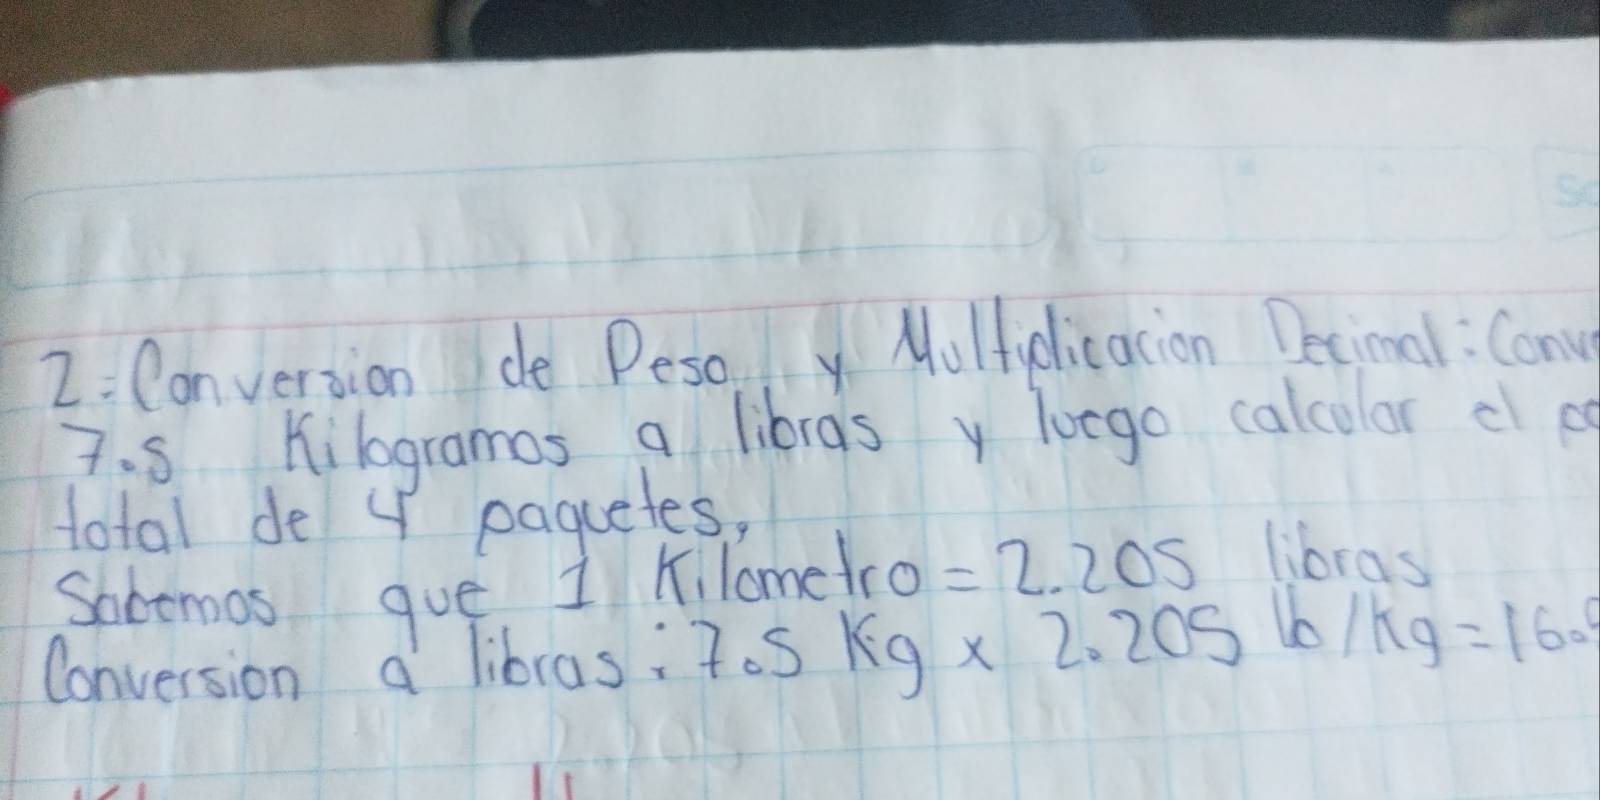 2=Conversion de Peso y Multiplicacion Decimal: Conv
7.5 Kilogramos a libras y luego calcular el
total de 4 paquetes,
Sabemos que 1 Kilometro = 2.205 libras
Conversion a libras: 7.5 Kg x 2.205 lb/Kg = 16.5